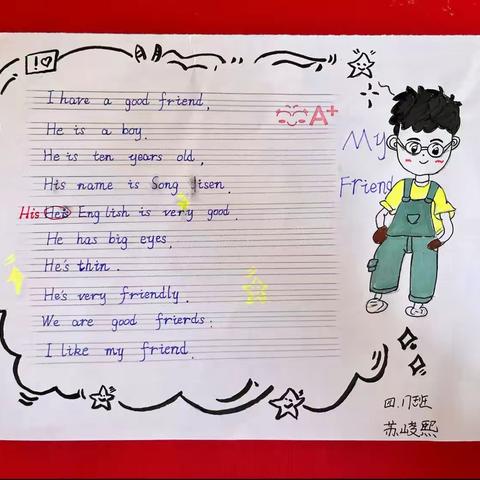 I have a good friend.
He is a boy.
He is ten years old.
His name is Song Jisen.
His He's English is very good.
He has big eyes.
He's thin.
He's very friendly.
We are good frierds.
I like my friend.
A+
My
Friend
四.17班
苏崚熙